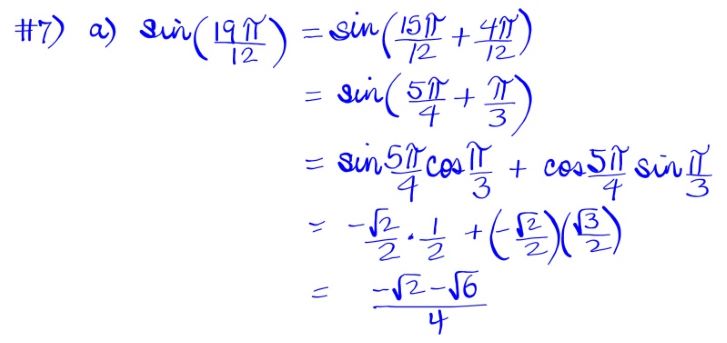 #7) a) sin(19π/12) = sin(15π/12 + 4π/12)
= sin(5π/4 + π/3)
= sin 5π/4 cos π/3 + cos 5π/4 sin π/3
= -√2/2 · 1/2 + (-√2/2)(√3/2)
= (-√2 - √6)/4